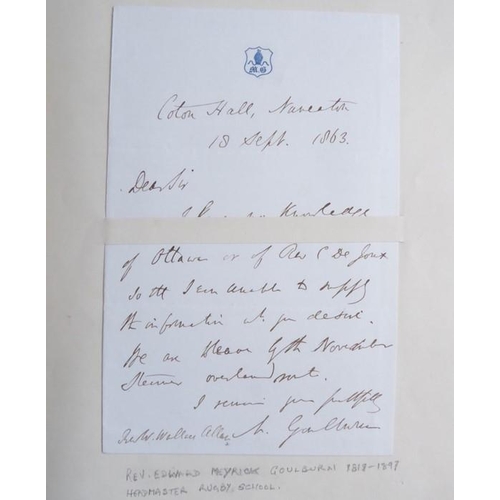 M.G
Coton Hall, Nuneaton
18 Sept. 1863.
Dear Sir
Knowledge
of Ottawa or of Rev C De Joux
so tht I am unable to supply
the information wh you desire.
We are 9th November
Steamer overland route.
I remain yours faithfully
Goulburn
REV. EDWARD MEYRICK GOULBURN 1818-1897
HEADMASTER RUGBY SCHOOL.